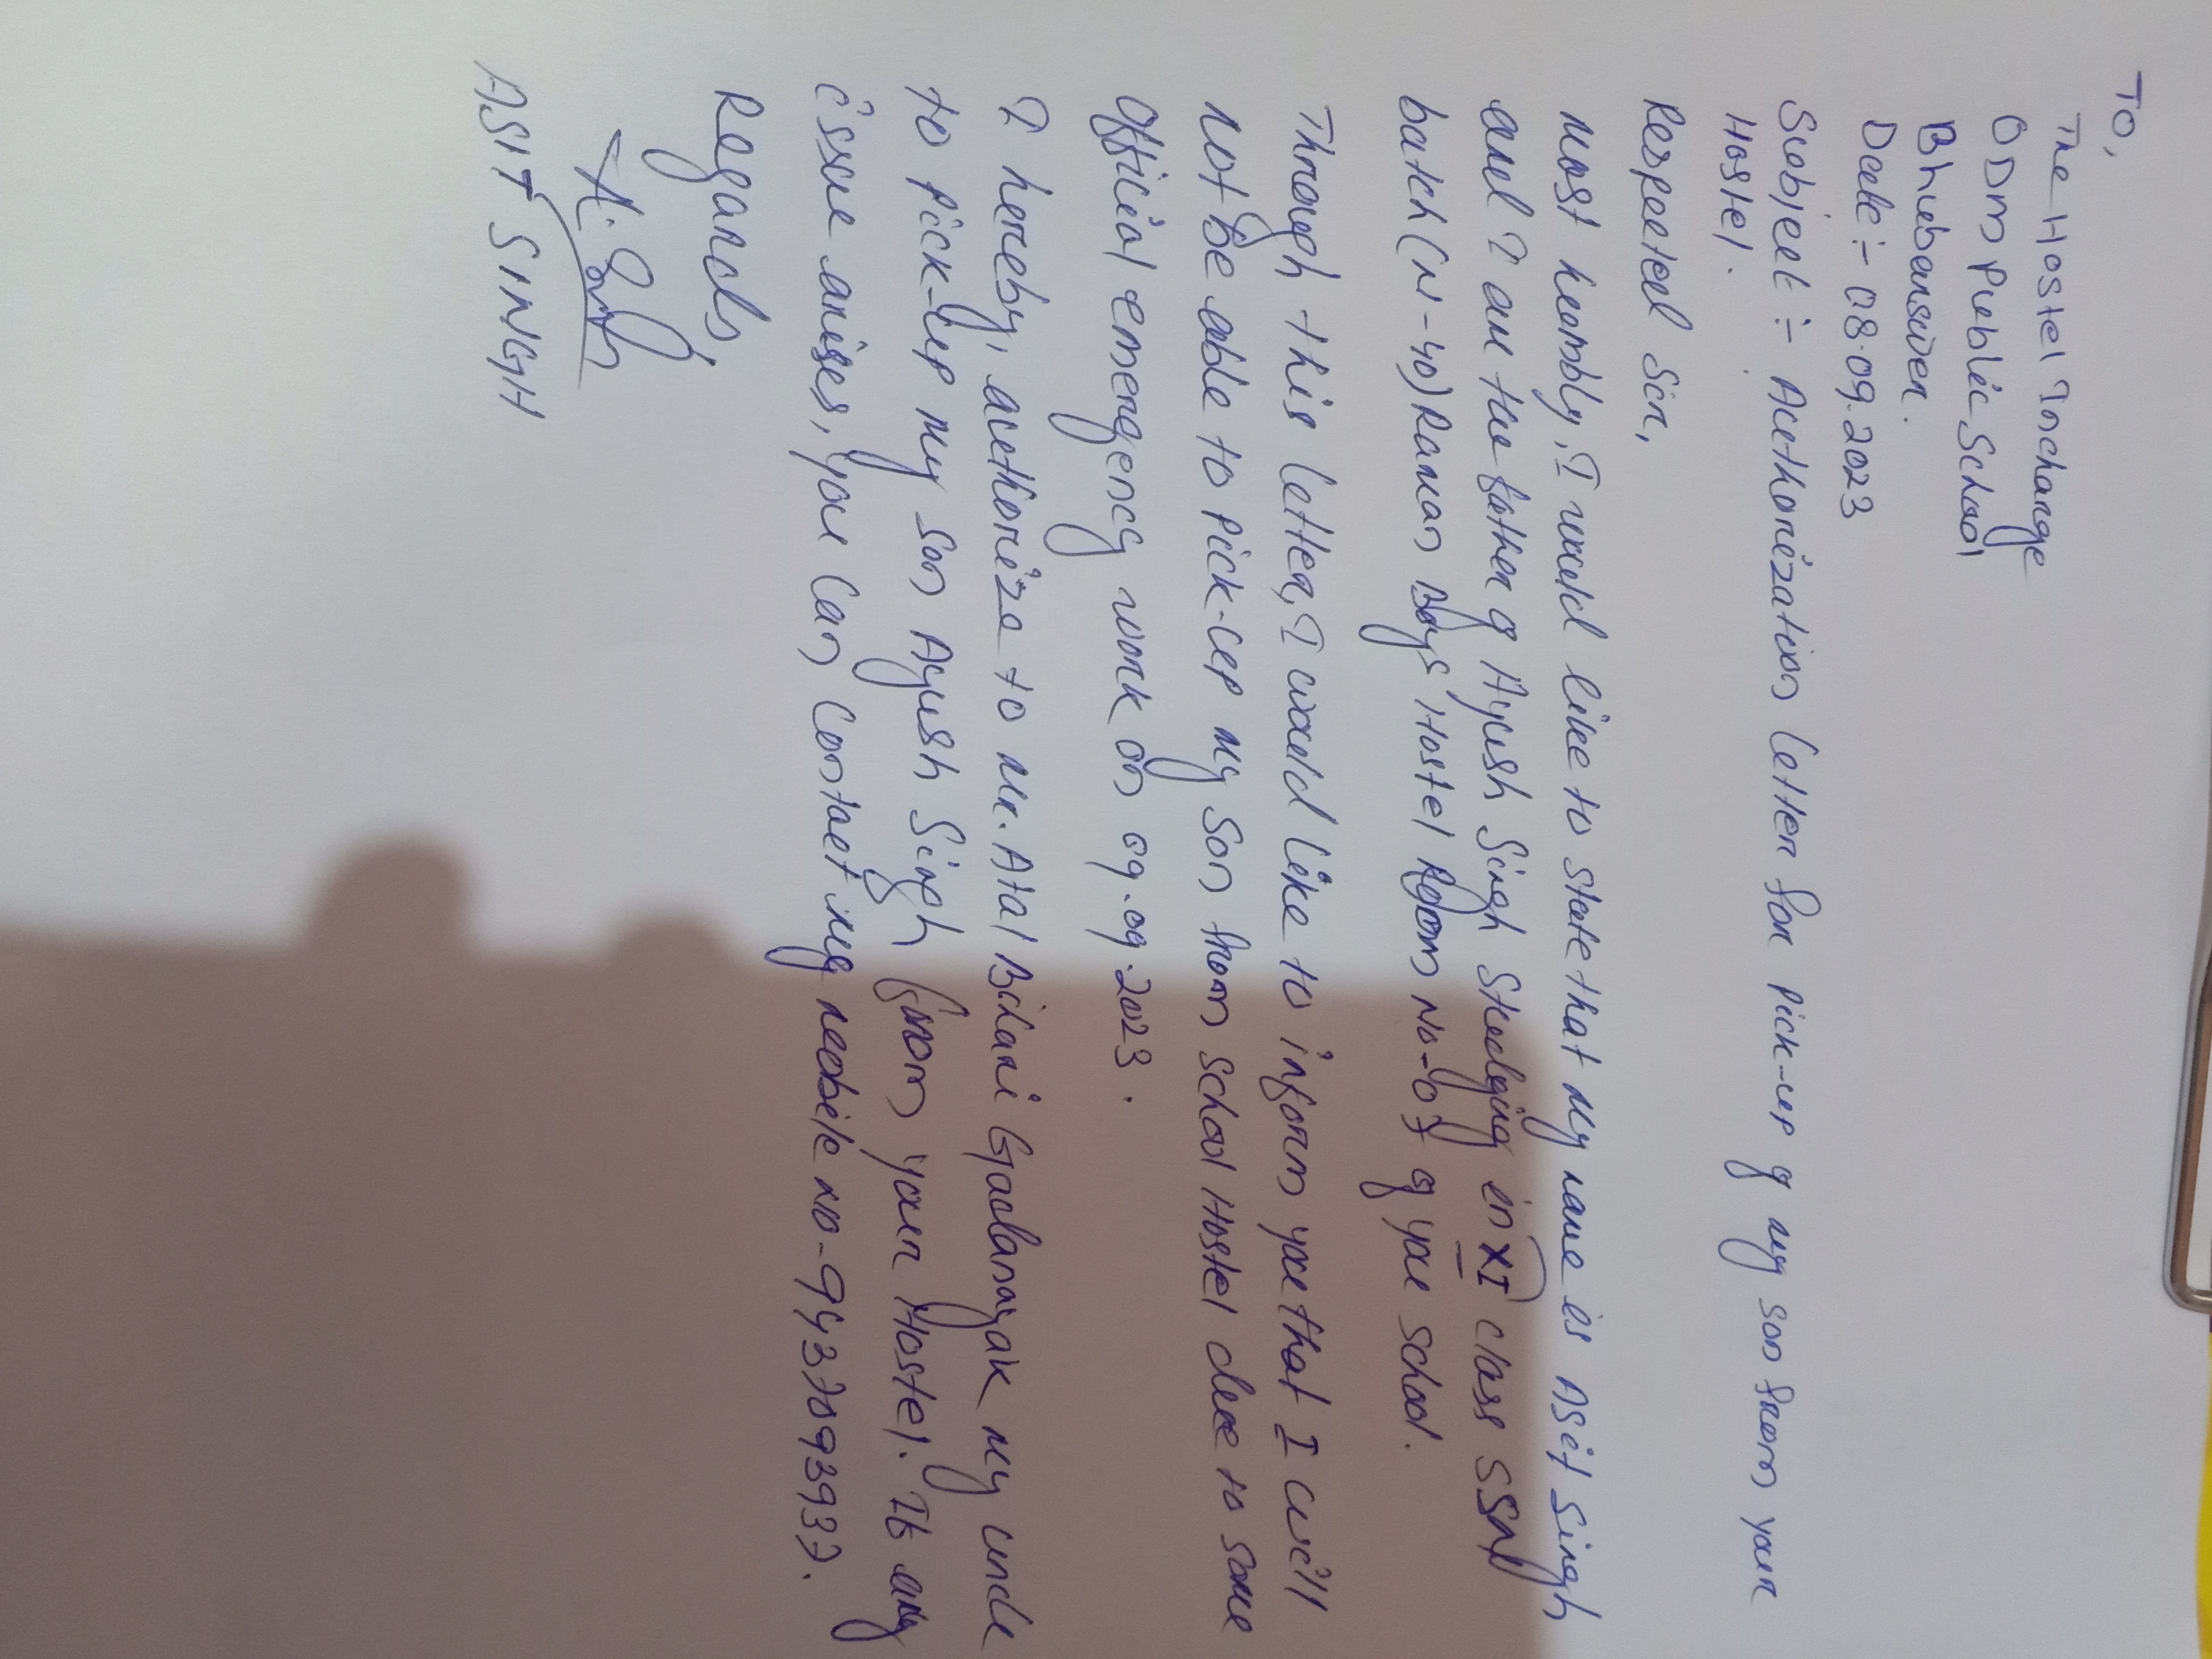 To,
The Hostel Incharge
ODM Public School
Bhubaneswar.
Date:- 08.09.2023
Subject:- Authorization letter for pick-up of my son from your
Hostel.
Respected Sir,
Most humbly, I would like to state that my name is Asit Singh
and I am the father of Ayush Singh Studying in XI class SSN
batch (N-40) Raman Boys' Hostel Room No-07 of you school.
Through this letter, I would like to inform you that I will
not be able to pick-up my son from school Hostel due to some
official emergency work on 09.09.2023.
I hereby, authorize to Mr. Atal Bihari Gadanayak my uncle
to pick-up my son Ayush Singh from your Hostel. If any
issue arises, you can contact my mobile no-9437093937.
Regards,
A. Singh
ASIT SINGH